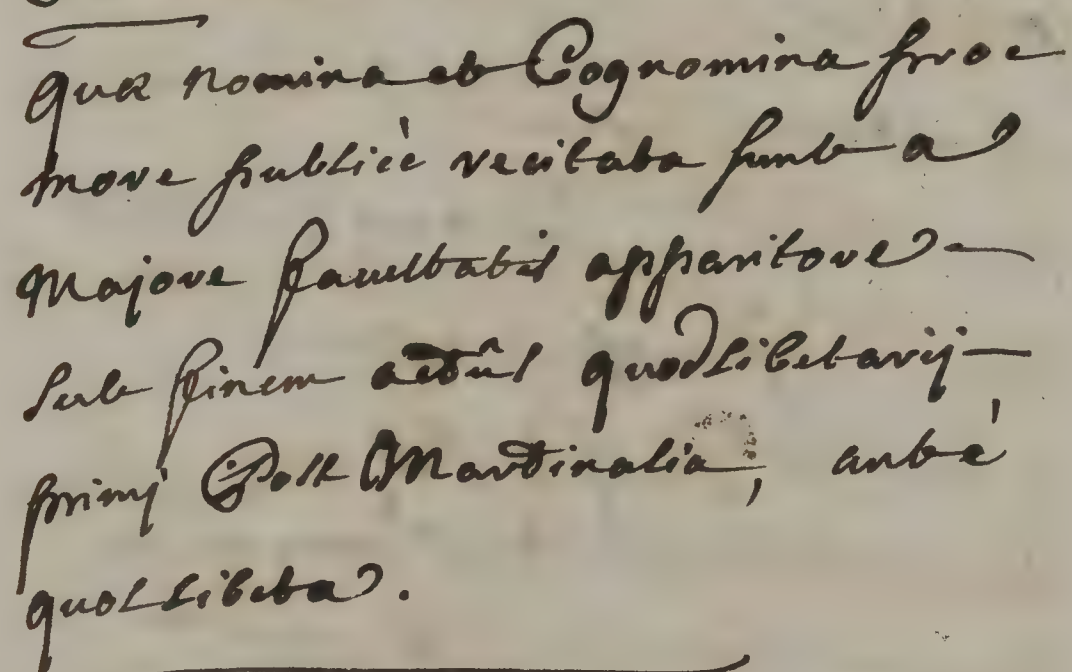 quæ nomina et Cognomina pro e
more publicè recitata sunt a
Majore facultatis apparitore
sub finem actûs quodlibetarij
primj Post Martinalia, antè
quotlibeta.